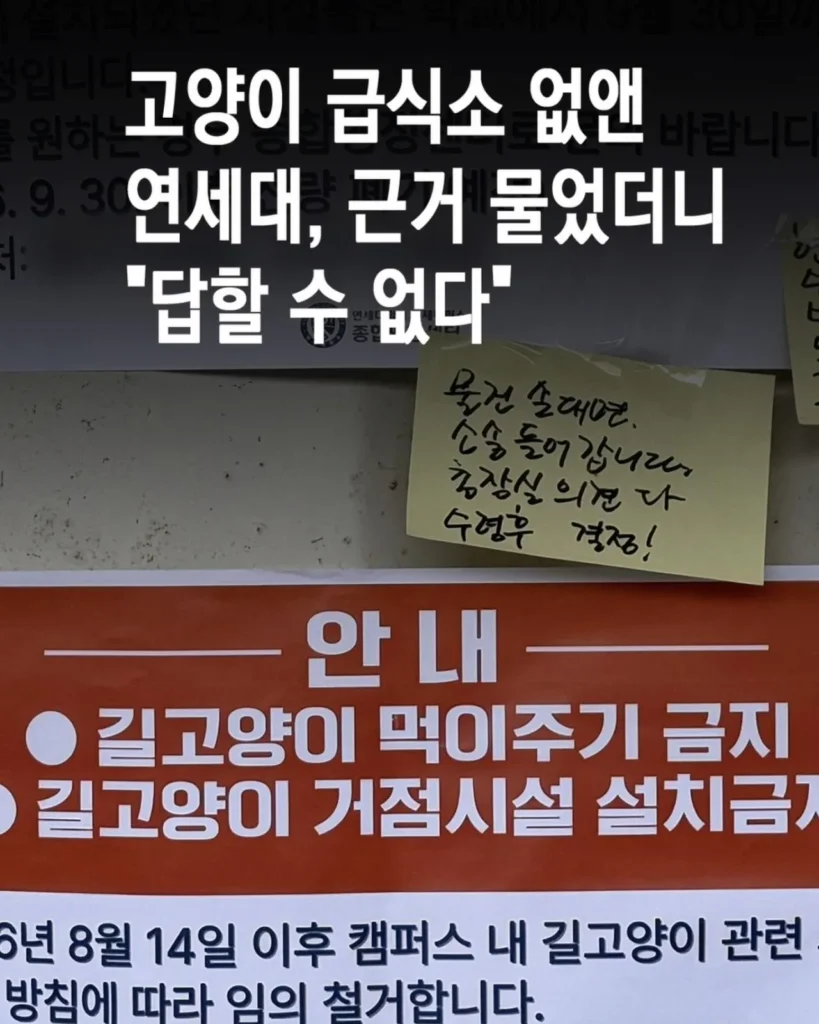 고양이 급식소 없앤
연세대, 근거 물었더니
"답할 수 없다"
물건 손대면.
소송 들어 갑니다.
총장실 의견 다
수렴후 결정!
안내
● 길고양이 먹이주기 금지
● 길고양이 거점시설 설치금지
6년 8월 14일 이후 캠퍼스 내 길고양이 관련
방침에 따라 임의 철거합니다.